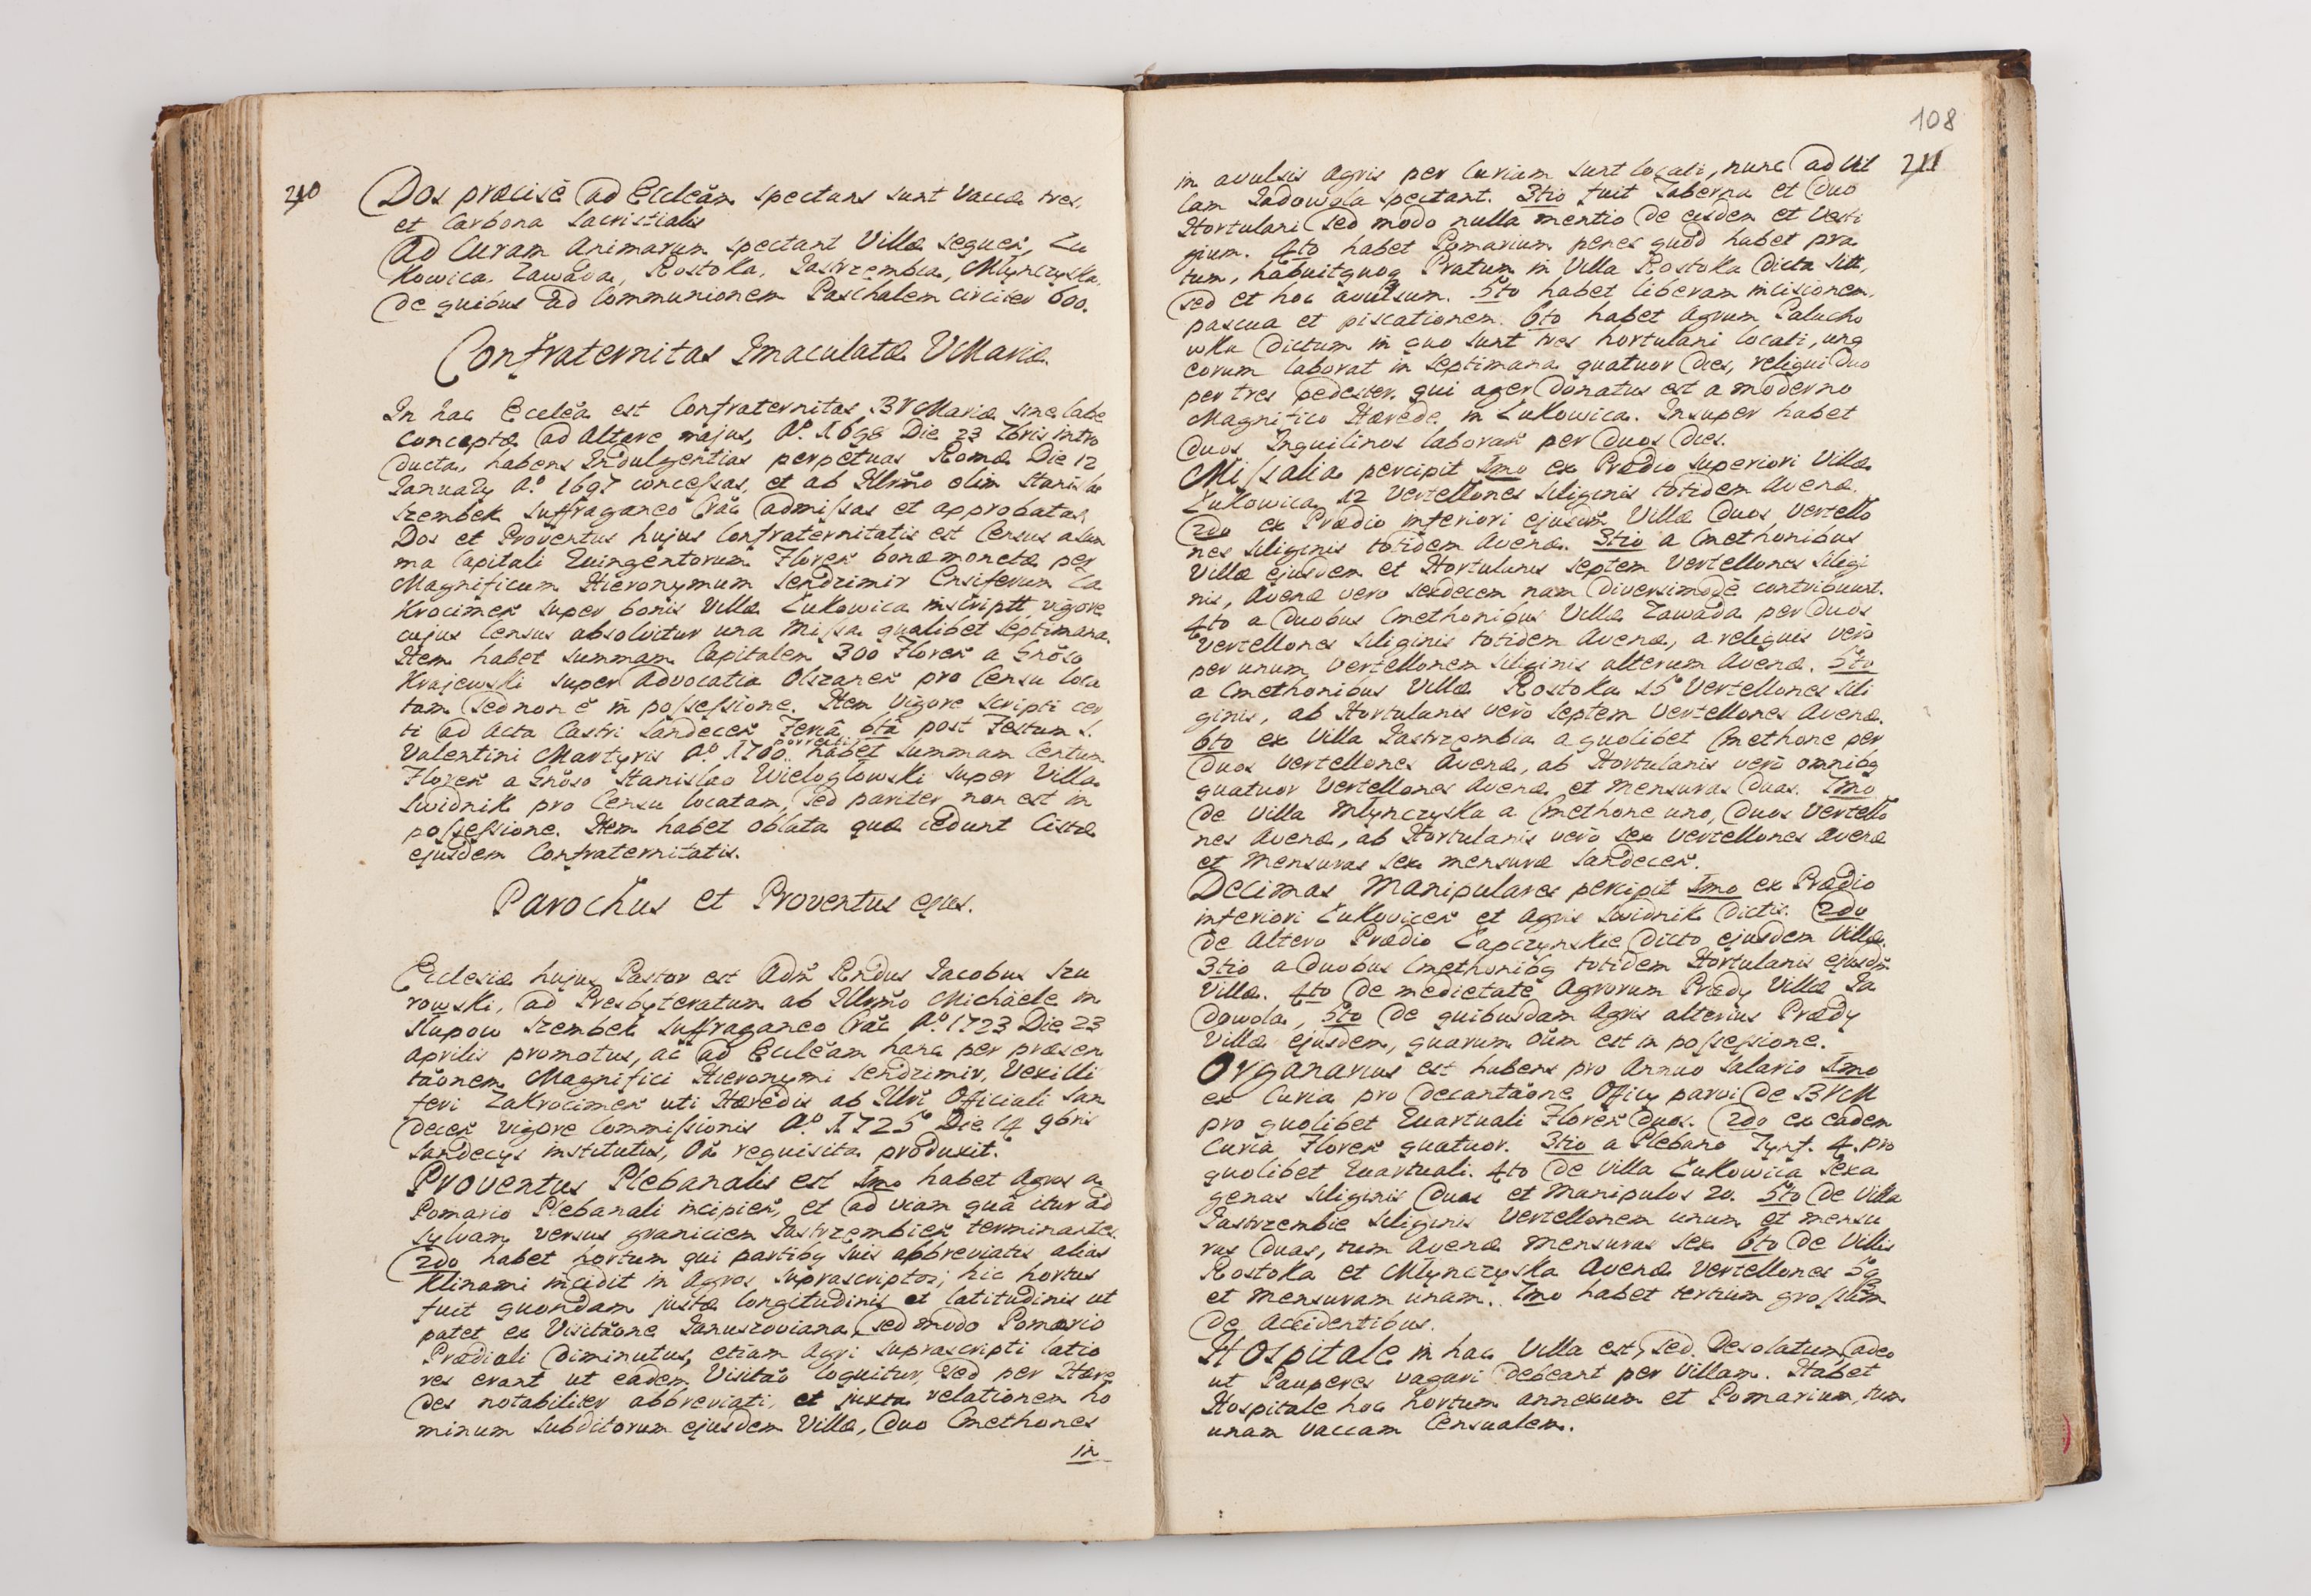 210
Dos præcisè ad Eccleãm spectans sunt Vaccæ tres,
et Carbona Sacristialis
Ad Curam Animarum spectant Villæ sequeñ, Łu
Kowica, Zawada, RostoKa, Jastrzembia, MłynczysKa,
de quibus ad Communionem Paschalem circiter 600.
Confraternitas Imaculatæ VMariæ
In hac Eccleã est Confraternitas BVMariæ sine labe
Conceptæ ad Altare majus, Aº 1698 Die 23 Xbris intro
ducta, habens Indulgentias perpetuas Romæ Die 12
January Aº 1697 concessas, et ab Illrmo olim Stanislao
Szembek Suffraganeo Crac admissas et approbatas,
Dos et Proventus hujus Confraternitatis est Census a sum
ma Capitali Quingentorum Floreñ bonæ monetæ per
Magnificum Hieronymum Sendzimir Ensiferum Za
Krocimeñ super bonis Villæ ŁuKowica inscriptt, vigore
cujus Census absolvitur una Missa qualibet Septimana
Item habet summam Capitalem 300 Floreñ a Gnoso
Krajewski super Advocatia Olszaneñ pro Censu loca
tam sed non è in possessione. Item Vigore Scripti cer
ti ad Acta Castri Sandeceñ Feria 6ta post Festum S.
Valentini Martyris Aº 1700 porrecti habet summam Centum
Floreñ a Gnoso Stanislao Wielogłowski super Villa
Swidnik pro Censu locatam, sed pariter non est in
possessione. Item habet oblata quæ cedunt Cistæ
ejusdem Confraternitatis.
Parochus et Proventus ejus.
Ecclesiæ hujus Pastor est Adm Rndus Jacobus Szu
rowski, ad Presbyteratum ab Illrmo Michaele in
Słupow Szembek Suffraganeo Crac Aº 1723 Die 23
Aprilis promotus, ac ad Eccleãm hanc per præsen
tãonem Magnifici Hieronymi Sendzimir, Vexilli
feri ZaKrocimeñ uti Hæredis ab Illri Officiali San
deceñ vigore Commissionis Aº 1725 Die 14 9bris
Sandecys institutus, Oã requisita produxit.
Proventus Plebanalis est 1mo habet Agros a
Pomario Plebanali incipieñ, et ad viam quâ itur ad
Sylvam versus graniciem Jastrzembieñ terminantes.
2do habet hortum qui partibq suis abbreviatis alias
Klinami incidit in Agros suprascriptos; hic hortus
fuit quondam justæ longitudinis et latitudinis ut
patet ex Visitãone Januszoviana, sed modo Pomario
Prædiali diminutus, etiam Agri suprascripti latio
res erant ut eadem Visitão loquitur, sed per Hære
des notabiliter abbreviati, et juxta relationem ho
minum Subditorum ejusdem Villæ, duo Cmethones
in
108
211
in avulsis Agris per Curiam sunt locati, nunc ad Vil
lam Jadowola spectant. 3tio fuit Taberna et duo
Hortulani sed modo nulla mentio de eisdem et Vesti
gium. 4to habet Pomarium penes quod habet pra
tum, habuitquoq Pratum in Villa RostoKa dicta sitt,
sed et hoc avulsum. 5to habet liberam incisionem,
pascua et piscationem. 6to habet Agrum Palucho
wKa dictum in quo sunt tres hortulani locati, unq
eorum laborat in septimana quatuor dies, reliqui duo
per tres pedester. qui ager donatus est a moderno
Magnifico Hærede in ŁuKowica. Insuper habet
duos Inquilinos laborañ per duos dies.
Missalia percipit 1mo ex Prædio superiori Villæ
ŁuKowica 12 Vertellones Siliginis totidem Avenæ.
2do ex Prædio inferiori ejusdm Villæ duos Vertello
nes Siliginis totidem Avenæ. 3tio a Cmethonibus
Villæ ejusdem et Hortulanis septem Vertellones Siligi
nis, Avenæ vero sexdecem nam diversimodè contribuunt.
4to a duobus Cmethonibus Villæ Zawada per duos
Vertellones Siliginis totidem Avenæ, a reliquis verò
per unum Vertellonem Siliginis alterum Avenæ. 5to
a Cmethonibus Villæ RostoKa 15 Vertellones Sili
ginis, ab Hortulanis verò septem Vertellones Avenæ.
6to ex Villa Jastrzembia a quolibet Cmethone per
duos Vertellones Avenæ, ab Hortulanis verò omnibq
quatuor Vertellones Avenæ et Mensuras duas. 7mo
de Villa MłynczysKa a Cmethone uno, duos Vertello
nes Avenæ, ab Hortulanis verò sex Vertellones Avenæ
et Mensuras sex mensuræ Sandeceñ.
Decimas Manipulares percipit 1mo ex Prædio
inferiori ŁuKoviceñ et Agris Swidnik dictis. 2do
de Altero Prædio Łapczynskie dicto ejusdem Villæ.
3tio a duobus Cmethonibq totidem Hortulanis ejusdm
Villæ. 4to de medietate Agrorum Prædy Villæ Ja
dowola, 5to de quibusdam Agris alterius Prædy
Villæ ejusdem, quarum oium est in possessione.
Organarius est habens pro Annuo Salario 1mo
ex Curia pro decantãone Officy parvi de BVM
pro quolibet Quartuali Floreñ duos. 2do ex eadem
Curia Floreñ quatuor. 3tio a Plebano Tynf. 4. pro
quolibet Quartuali. 4to de Villa ŁuKowica Sexa
genas Siliginis duas et Manipulos 20. 5to de Villa
Jastrzembie Siliginis Vertellonem unum et mensu
ras duas, tum Avenæ Mensuras sex 6to de Villis
RostoKa et MłynczysKa Avenæ Vertellones 5q
et Mensuram unam. 7mo habet tertium grossum
de Accidentibus.
Hospitale in hac Villa est, sed Desolatum, adeo
ut Pauperes vagari debeant per Villam. Habet
Hospitale hoc hortum annexum et Pomarium, tum
unam Vaccam Censualem.